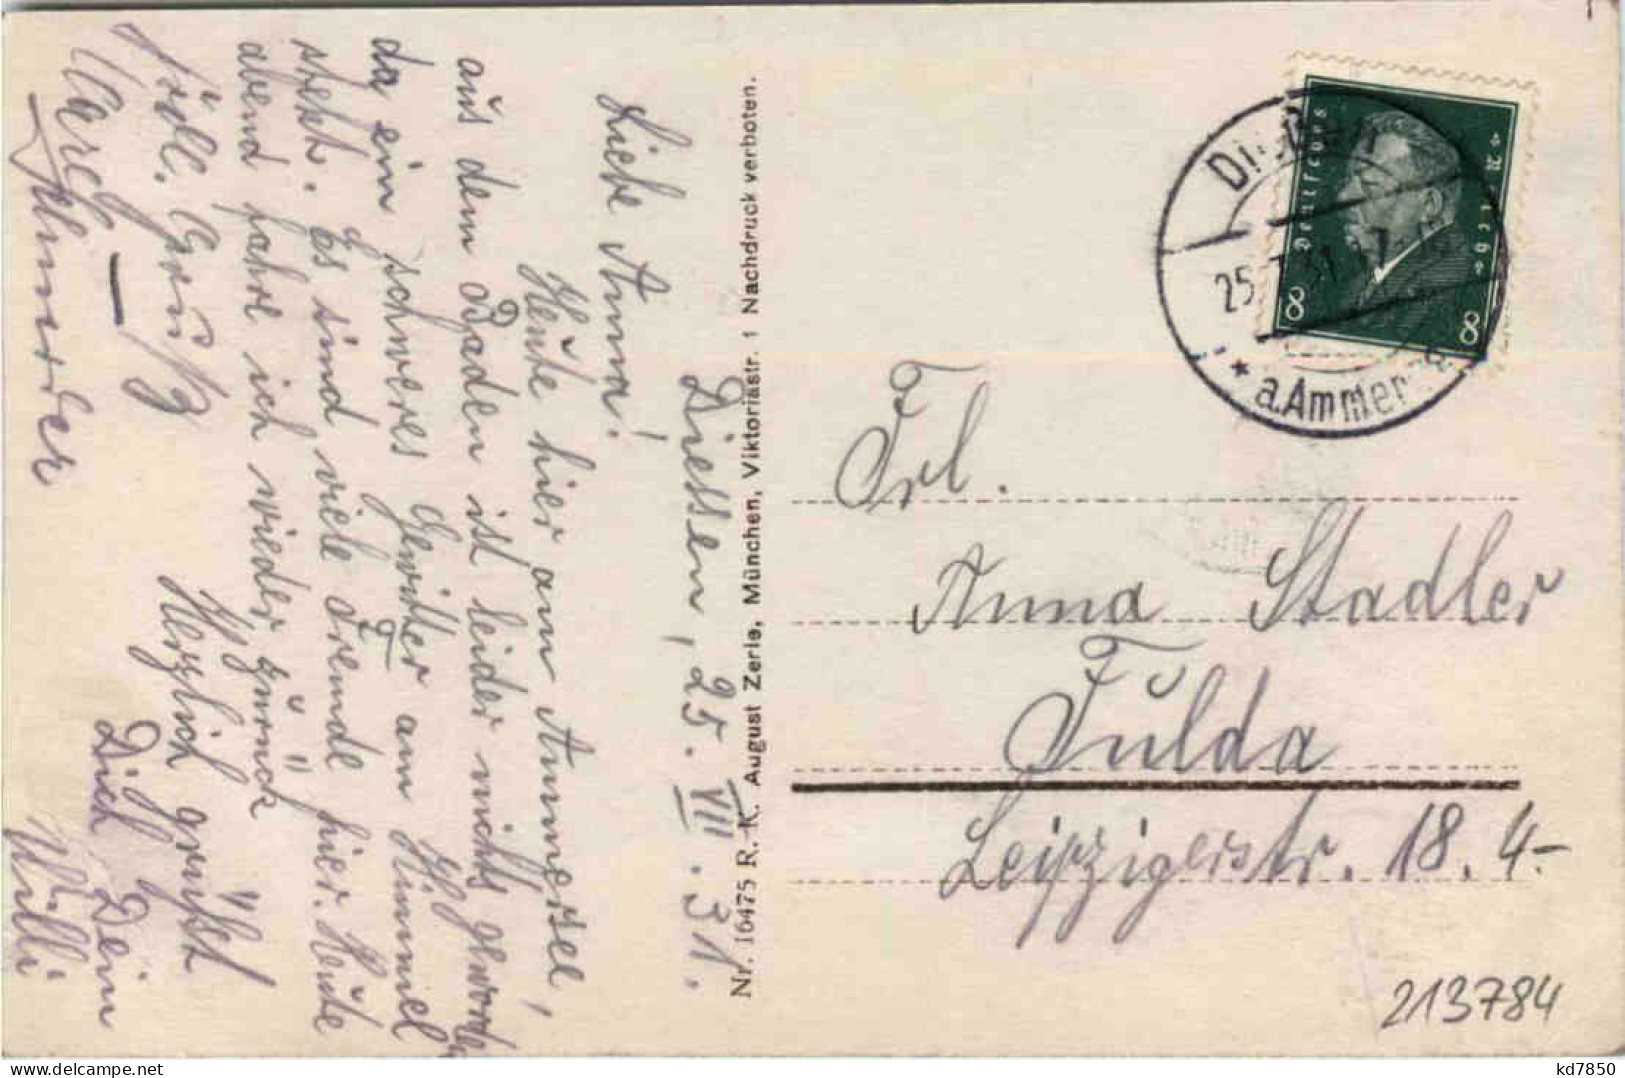 Diessen, 25. VII. 31.
Liebe Anna!
Heute hier am Ammersee,
aus dem Baden ist leider nichts geworden
da ein schweres Gewitter am Himmel
steht. Es sind viele Fremde hier. Heute
abend fahre ich wieder zurück
Herzlich grüßt
Dich Dein
Willi
Frdl. Gruß
Nr. 16475 R. K. August Zerle, München, Viktoriastr. 1 Nachdruck verboten.
Deutsches Reich
8 8
25.7.31
a.Ammersee
Frl.
Anna Stadler
Fulda
Leipzigerstr. 18.
4.-
213784
kd7850